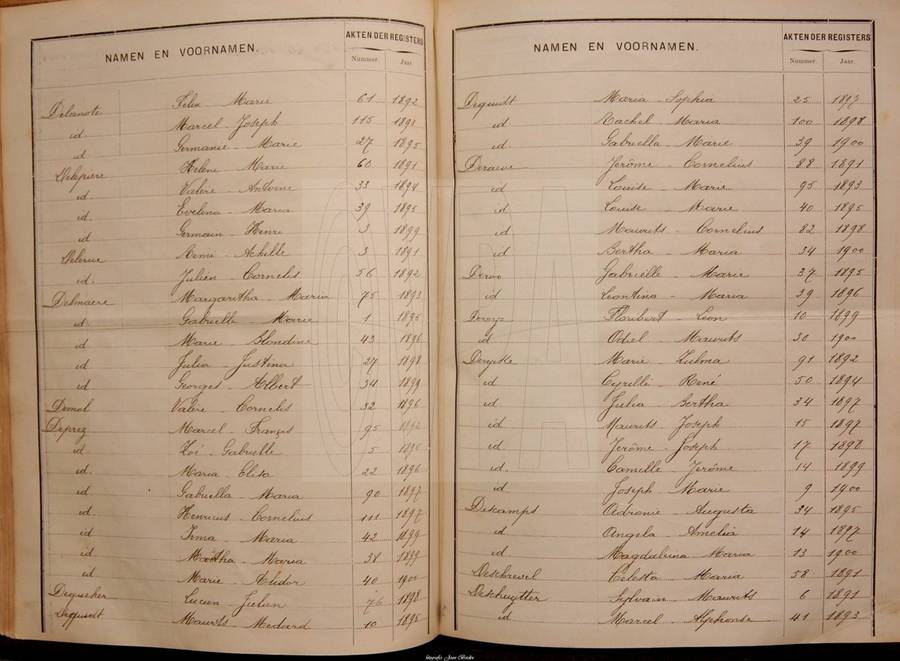 NAMEN EN VOORNAMEN. AKTEN DER REGISTERS
Nummer. Jaar.
Delanote Felix Marie 61 1892
id Marcel Joseph 115 1893
id Germanie - Marie 27 1895
Delepiere Helene Marie 60 1891
id Valere - Antoine 33 1894
id Evelina - Maria 39 1895
id Germain - Henri 3 1899
Delerue Remi - Achille 3 1891
id. Julien - Cornelis 56 1892
Delmaere Margaritha - Maria 75 1893
id Gabrielle - Marie 1 1895
id Marie - Blondine 43 1896
id Julia - Justina 27 1898
id Georges - Albert 34 1899
Demol Valère - Cornelis 32 1896
Deprez Marcel - François 95 1892
id Zoë - Gabrielle 5 1895
id. Maria Elisa 22 1896
id Gabriella - Maria 90 1897
id. Henricus - Cornelius 111 1897
id Irma - Maria 42 1899
id Martha - Maria 38 1899
id Marie - Alidor 40 1900
Dequeker Lucien Julien 76 1898
Dequidt Maurits Medard 10 1895
NAMEN EN VOORNAMEN. AKTEN DER REGISTERS
Nummer. Jaar.
Dequidt Maria - Sophia 25 1897
id Rachel - Maria 100 1898
id Gabriella - Marie 39 1900
Deraeve Jerôme - Cornelius 88 1891
id Louise - Marie 95 1893
id Louise - Marie 40 1895
id Maurits - Cornelius 82 1898
id Bertha - Maria 34 1900
Deroo Gabrielle - Marie 37 1895
id Leontina - Maria 39 1896
Floribert - Leon 10 1899
id Odiel - Maurits 30 1900
Derycke Marie - Zulma 91 1892
id Cyrille - René 50 1894
id Julia - Bertha 34 1897
id Maurits - Joseph 15 1897
id Jerôme - Joseph 17 1898
id. Camille - Jerôme 14 1899
id Joseph - Marie 9 1900
Descamps Adronie - Augusta 34 1895
id Angela - Amelia 14 1897
id Magdalena Maria 13 1900
Deschrevel Celesta - Maria 58 1891
Deschuytter Sylvain - Maurits 6 1891
id Marcel - Alphonse 41 1893